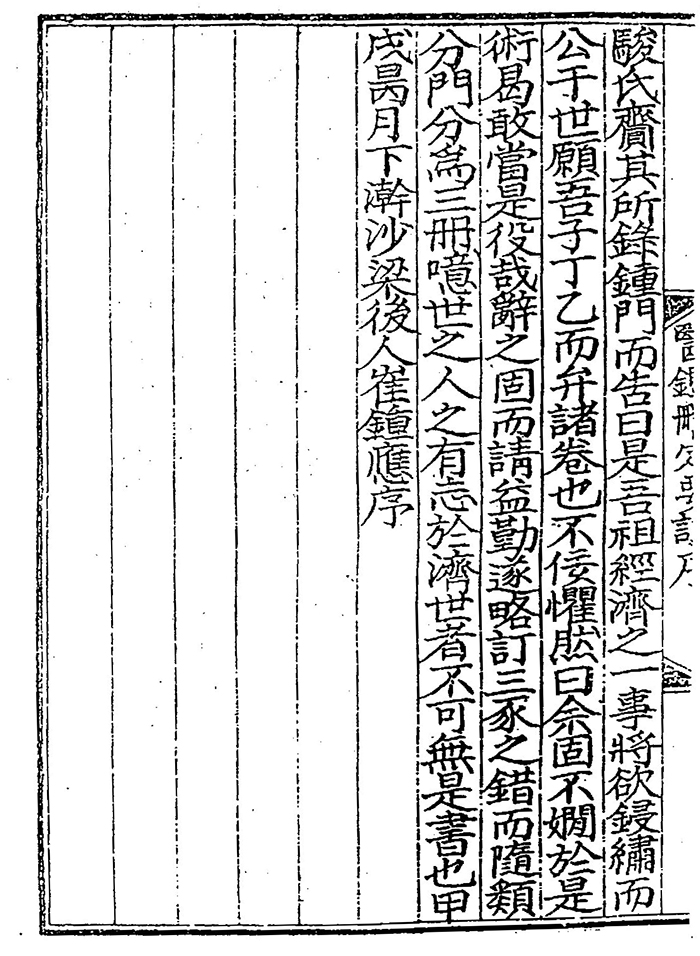 醫鑑刪定要訣序
駿氏齎其所錄鍾門而告曰是吾祖經濟之一事將欲鋟繡而
公于世願吾子丁乙而弁諸卷也不佞懼然曰余固不嫺於是
術曷敢當是役哉辭之固而請益勤遂略訂三豕之錯而隨類
分門分爲三冊噫世之人之有志於濟世者不可無是書也甲
戌暠月下澣沙梁後人崔鍾應序